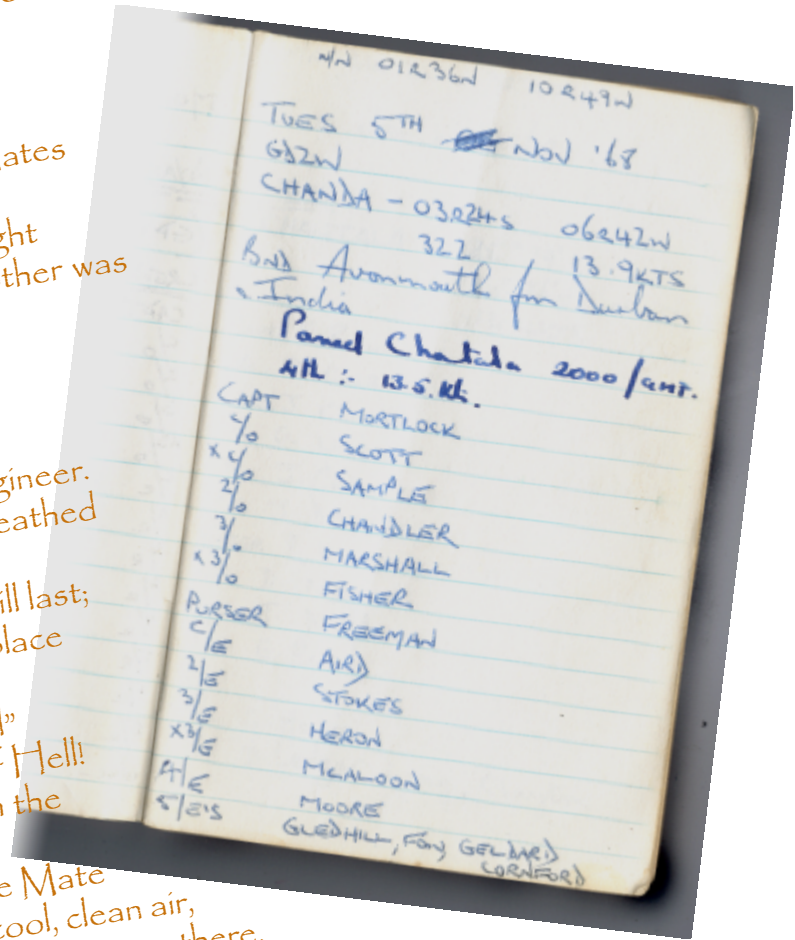 ates
ght
ther was
gineer.
eathed
ill last;
place
l”
Hell!
n the
e Mate
cool, clean air,
there.
N/N 01R36N 10R49W
TUES 5TH NOV '68
GDZW
CHANDA - 03R24S 06R42W
322 13.9KTS
BND Avonmouth from Durban
India
Passed Chantala 2000/GMT.
4th :- 13.5. Kts.
CAPT MORTLOCK
C/O SCOTT
X C/O SAMPLE
2/O CHANDLER
3/O MARSHALL
X 3/O FISHER
PURSER FREEMAN
C/E AIRD
2/E STOKES
3/E HERON
X3/E MCALOON
4/E MOORE
5/E'S GLEDHILL, FOY, GELDARD
CORNFORD